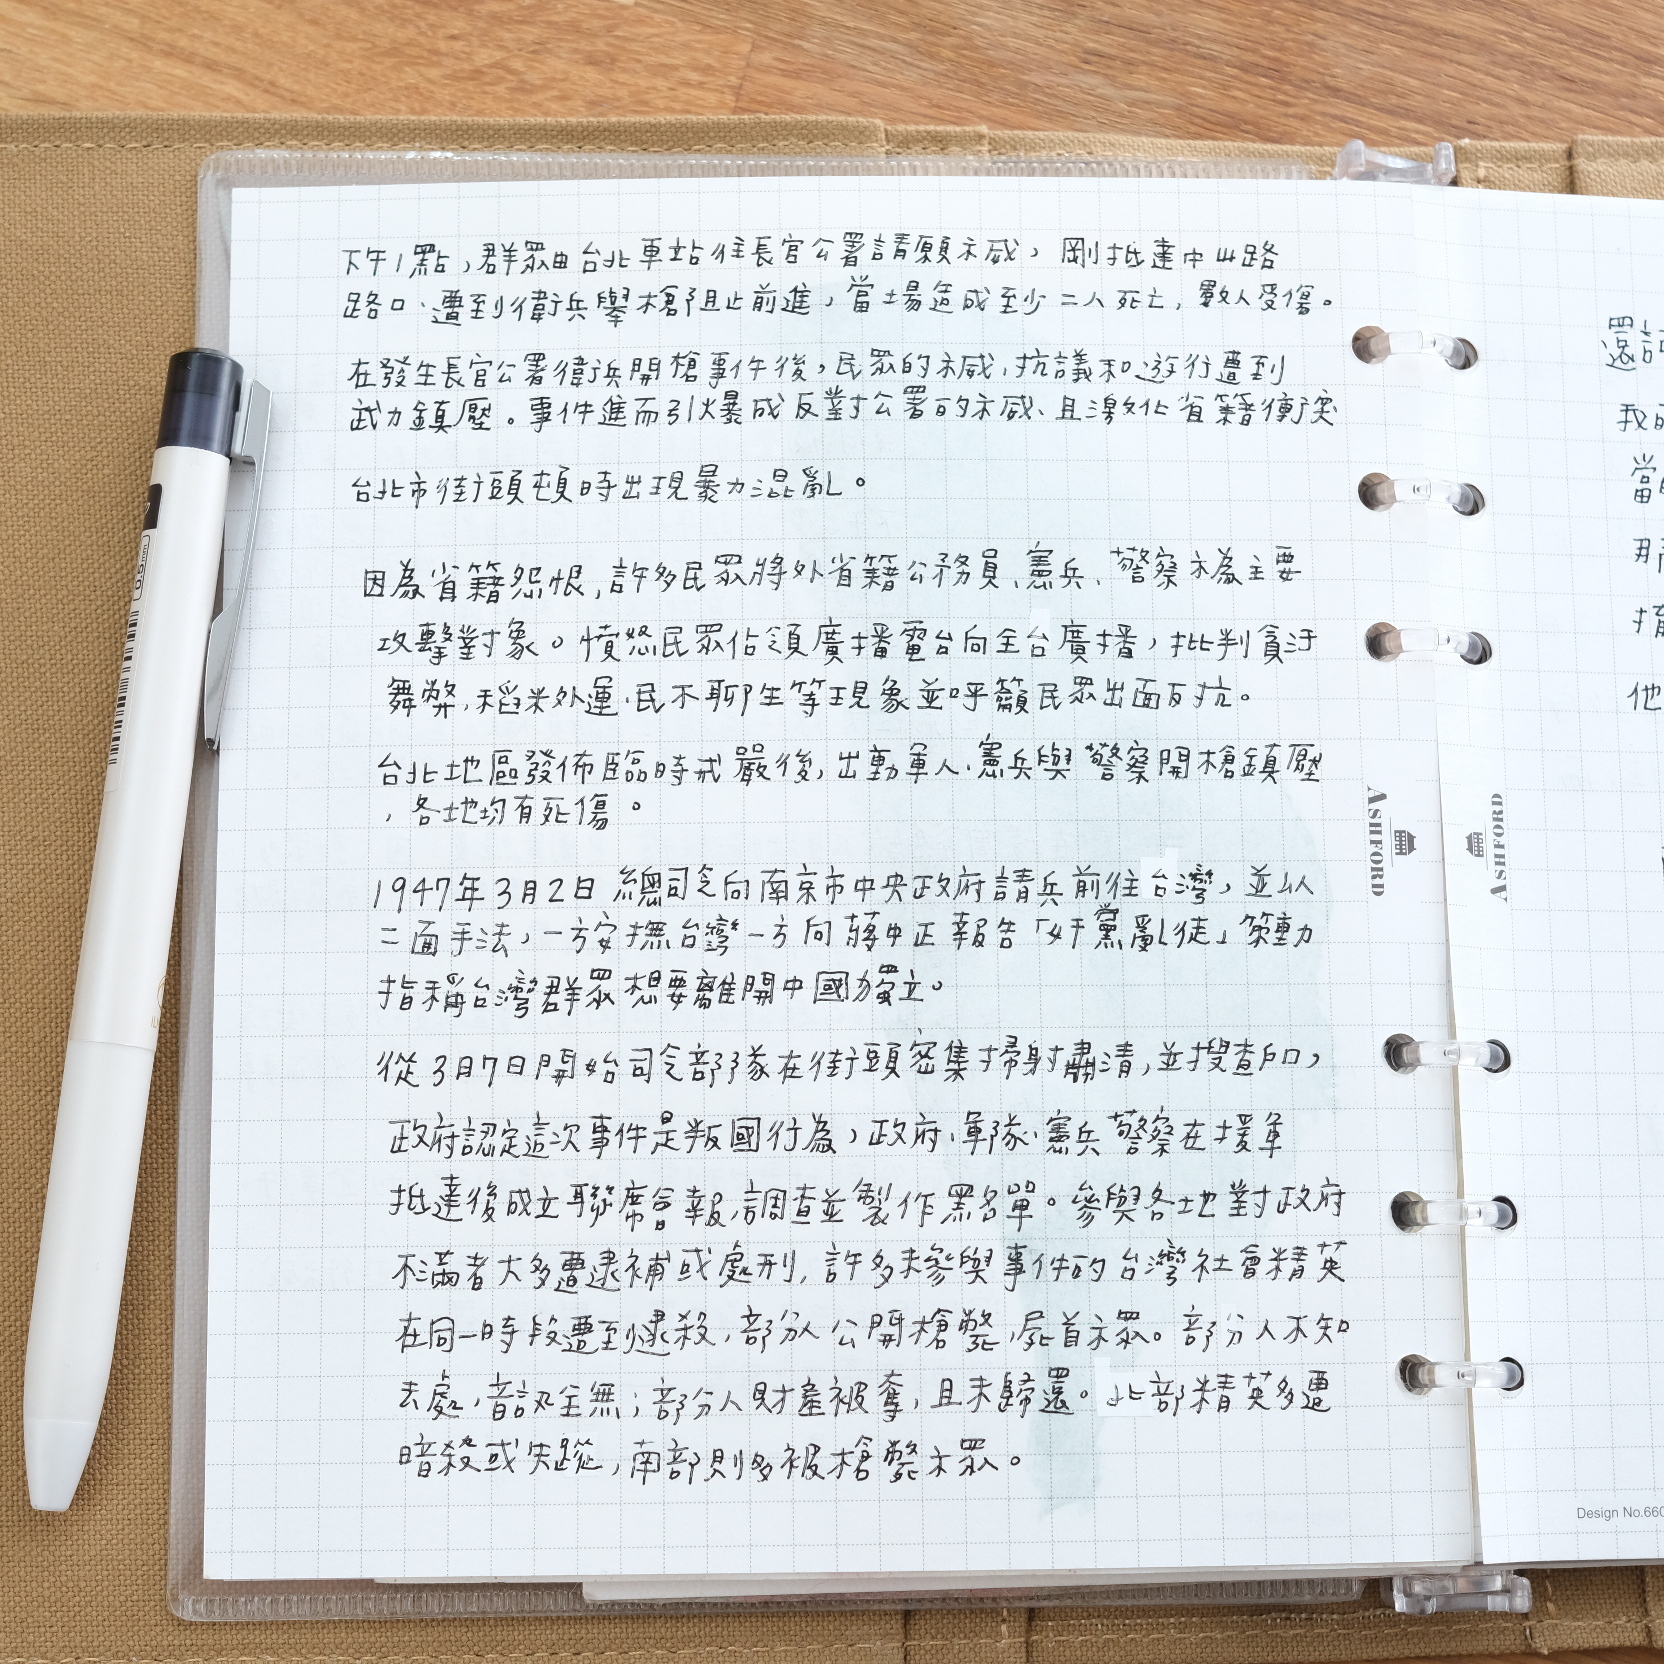 下午1點，群眾由台北車站往長官公署請願示威，剛抵達中山路
路口、遭到衛兵舉槍阻止前進，當場造成至少二人死亡，數人受傷。
在發生長官公署衛兵開槍事件後，民眾的示威、抗議和遊行遭到
武力鎮壓。事件進而引爆成反對公署的示威、且激化省籍衝突
台北市街頭頓時出現暴力混亂。
因為省籍怨恨，許多民眾將外省籍公務員、憲兵、警察示為主要
攻擊對象。憤怒民眾佔領廣播電台向全台廣播，批判貪汙
舞弊，稻米外運、民不聊生等現象並呼籲民眾出面反抗。
台北地區發佈臨時戒嚴後，出動軍人、憲兵與警察開槍鎮壓
，各地均有死傷。
1947年3月2日 總司令向南京市中央政府請兵前往台灣，並以
二面手法，一方安撫台灣一方向蔣中正報告「奸黨亂徒」策動
指稱台灣群眾想要離開中國獨立。
從3月7日開始司令部隊在街頭密集掃射肅清，並搜查戶口，
政府認定這次事件是叛國行為，政府、軍隊、憲兵警察在援軍
抵達後成立聯席會報，調查並製作黑名單。參與各地對政府
不滿者大多遭逮補或處刑，許多未參與事件的台灣社會精英
在同一時段遭到逮殺，部分人公開槍斃，屍首示眾。部分人不知
去處，音訊全無；部分人財產被奪，且未歸還。北部精英多遭
暗殺或失蹤，南部則多被槍斃示眾。
ASHFORD
ASHFORD
還
我
當
他
Design No.660